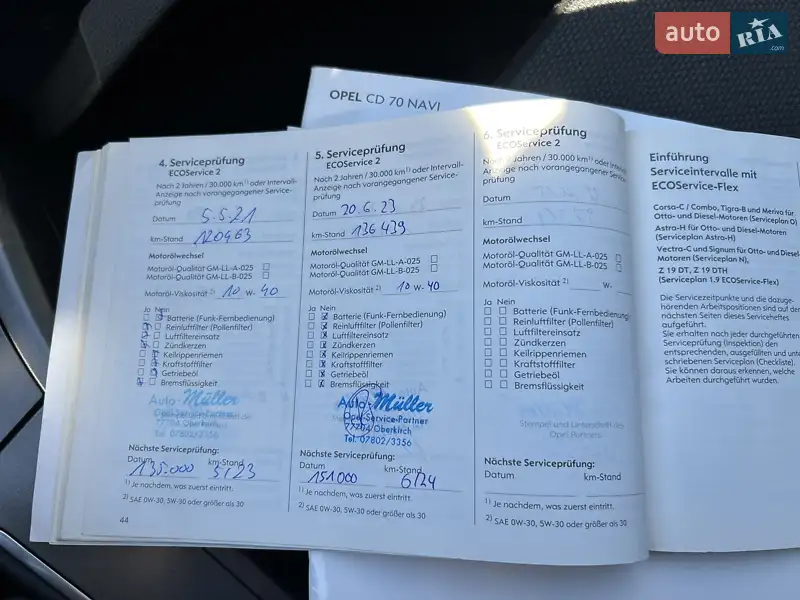 auto RIA .com
OPEL CD 70 NAVI
4. Serviceprüfung
ECOService 2
Nach 2 Jahren / 30.000 km¹⁾ oder Intervall-
Anzeige nach vorangegangener Service-
prüfung
Datum 5.5.21
km-Stand 120463
Motorölwechsel
Motoröl-Qualität GM-LL-A-025
Motoröl-Qualität GM-LL-B-025
Motoröl-Viskosität ²⁾ 10 W- 40
Ja Nein
Batterie (Funk-Fernbedienung)
Reinluftfilter (Pollenfilter)
Luftfiltereinsatz
Zündkerzen
Keilrippenriemen
Kraftstofffilter
Getriebeöl
Bremsflüssigkeit
Auto-Müller
Opel-Service-Partner
77704 Oberkirch
Tel. 07802/3356
Nächste Serviceprüfung:
Datum km-Stand
135.000 5/23
¹⁾ Je nachdem, was zuerst eintritt.
²⁾ SAE 0W-30, 5W-30 oder größer als 30
44
5. Serviceprüfung
ECOService 2
Nach 2 Jahren / 30.000 km¹⁾ oder Intervall-
Anzeige nach vorangegangener Service-
prüfung
Datum 20.6.23
km-Stand 136439
Motorölwechsel
Motoröl-Qualität GM-LL-A-025
Motoröl-Qualität GM-LL-B-025
Motoröl-Viskosität ²⁾ 10 W- 40
Ja Nein
Batterie (Funk-Fernbedienung)
Reinluftfilter (Pollenfilter)
Luftfiltereinsatz
Zündkerzen
Keilrippenriemen
Kraftstofffilter
Getriebeöl
Bremsflüssigkeit
Auto-Müller
Opel-Service-Partner
77704 Oberkirch
Tel. 07802/3356
Nächste Serviceprüfung:
Datum km-Stand
151000 6/24
¹⁾ Je nachdem, was zuerst eintritt.
²⁾ SAE 0W-30, 5W-30 oder größer als 30
6. Serviceprüfung
ECOService 2
Nach 2 Jahren / 30.000 km¹⁾ oder
Anzeige nach vorangegangener
prüfung
Datum
km-Stand
Motorölwechsel
Motoröl-Qualität GM-LL-A-025
Motoröl-Qualität GM-LL-B-025
Motoröl-Viskosität ²⁾ W-
Ja Nein
Batterie (Funk-Fernbedienung)
Reinluftfilter (Pollenfilter)
Luftfiltereinsatz
Zündkerzen
Keilrippenriemen
Kraftstofffilter
Getriebeöl
Bremsflüssigkeit
Stempel und Unterschrift des
Opel Partners
Nächste Serviceprüfung:
Datum km-Stand
¹⁾ Je nachdem, was zuerst eintritt.
²⁾ SAE 0W-30, 5W-30 oder größer als 30
Einführung
Serviceintervalle mit
ECOService-Flex
Corsa-C / Combo, Tigra-B und Meriva für
Otto- und Diesel-Motoren (Serviceplan O)
Astra-H für Otto- und Diesel-Motoren
(Serviceplan Astra-H)
Vectra-C und Signum für Otto- und Diesel-
Motoren (Serviceplan N),
Z 19 DT, Z 19 DTH
(Serviceplan 1.9 ECOService-Flex)
Die Servicezeitpunkte und die dazuge-
hörenden Arbeitspositionen sind auf den
nächsten Seiten dieses Serviceheftes
aufgeführt.
Sie erhalten nach jeder durchgeführten
Serviceprüfung (Inspektion) den
entsprechenden, ausgefüllten und unter-
schriebenen Serviceplan (Checkliste).
Sie können daraus erkennen, welche
Arbeiten durchgeführt wurden.